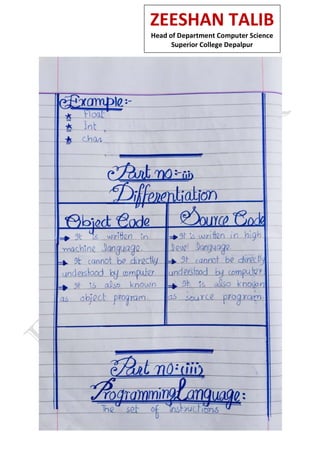 ZEESHAN TALIB
Head of Department Computer Science
Superior College Depalpur
Example:-
Float
Int
char
Part no:-(ii)
Differentiation
Object Code
It is written in
machine language.
It cannot be directly
understood by computer
It is also known
as object program.
Source Code
It is written in high
level language
It cannot be directly
understood by computer.
It is also known
as source program.
Part no:(iii)
Programming Language:
The set of instructions